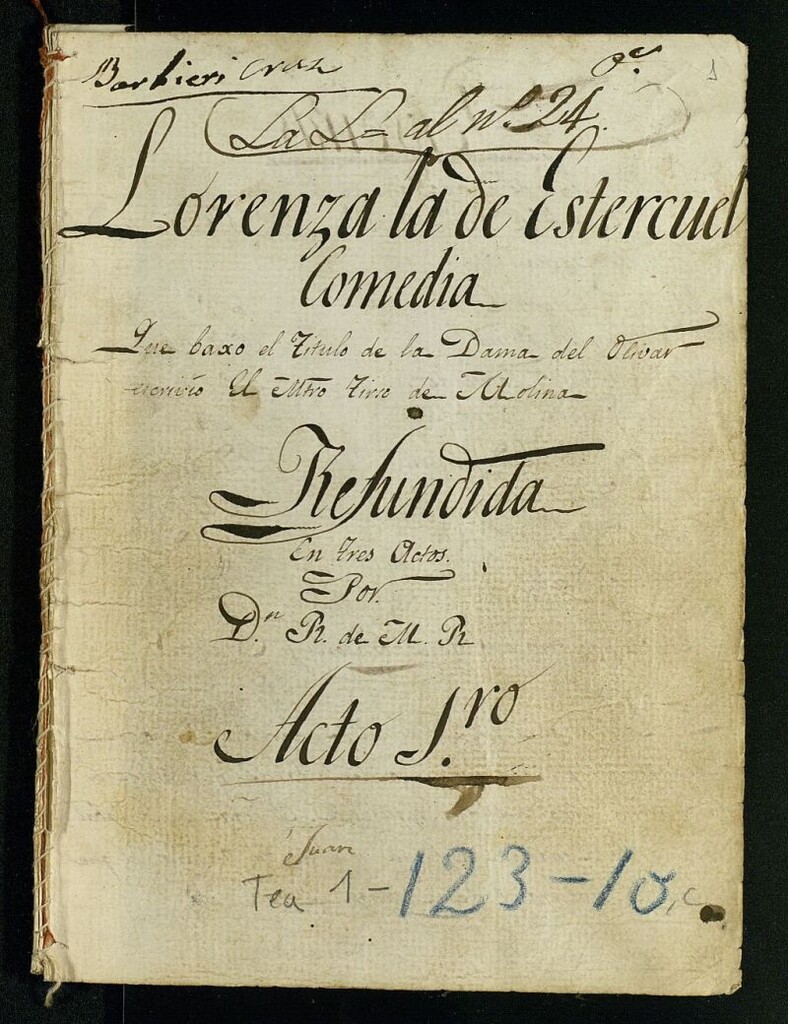 Barbieri Cruz
1
La L= al nº. 24.
Lorenza la de Estercuel
Comedia
Que baxo el Titulo de la Dama del Olivar
escrivio El Mtro Tirso de Molina
Refundida
En tres Actos.
Por
D.n R. de M. R
Acto 1.ro
Juan
Tea 1-123-10, c